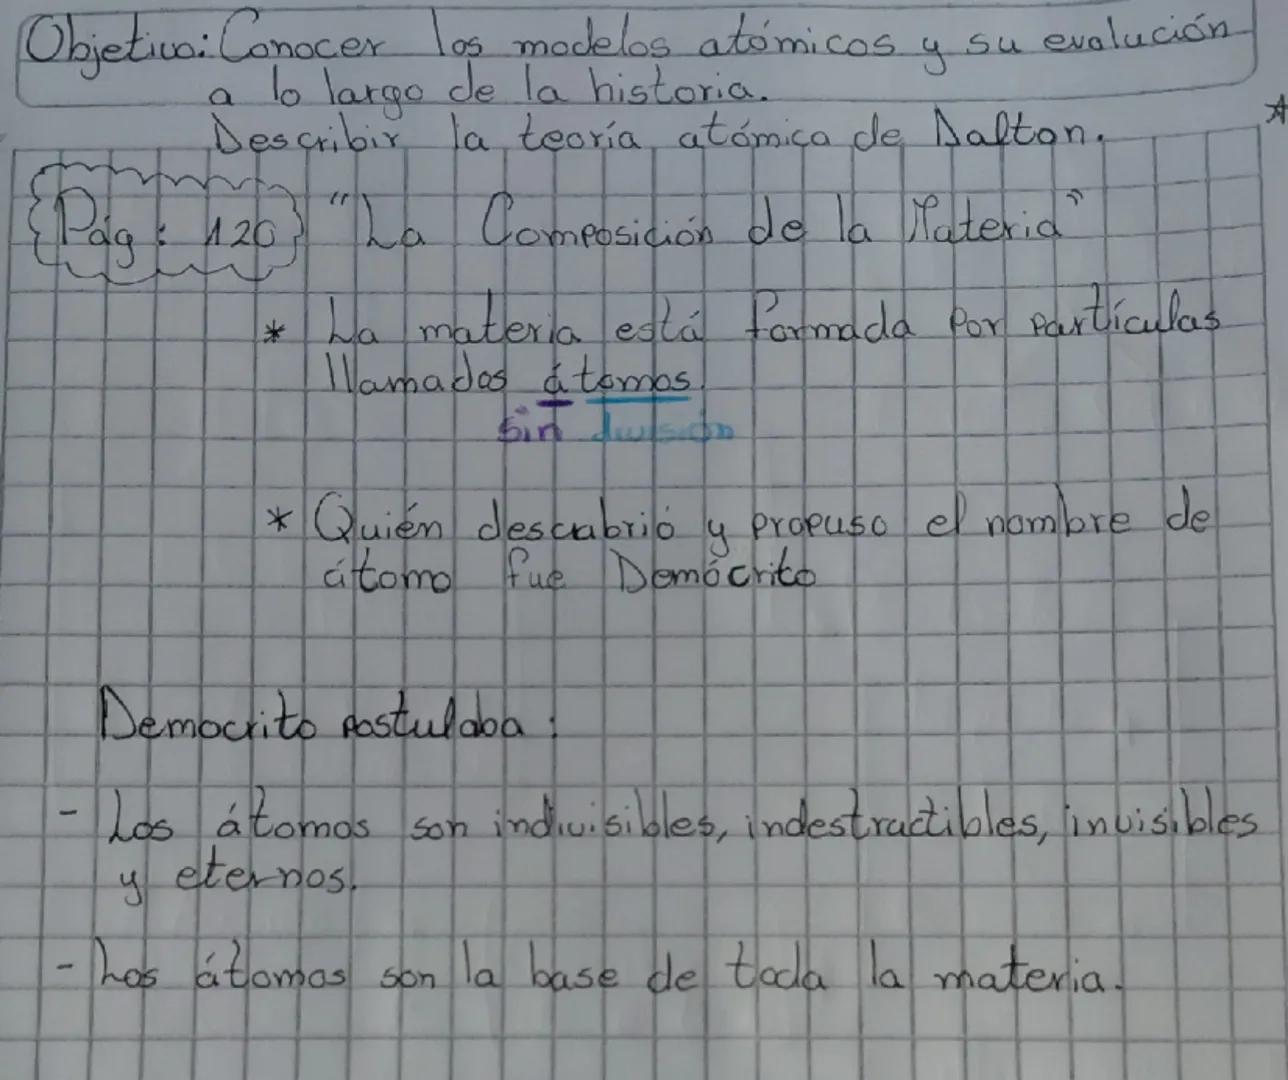 Objetivo: Conocer los modelos atómicos y su evalución
a lo largo de la historia.
Describir la teoría atómica de Dalton.
Pág: 120 "La Composición de la Materia"
* La materia está formada por partículas
llamados átomos.
sin división
* Quién descubrió y propuso el nombre de
átomo fue Demócrito
Demócrito postulaba:
- Los átomos son indivisibles, indestructibles, invisibles
y eternos.
- Los átomos son la base de toda la materia.